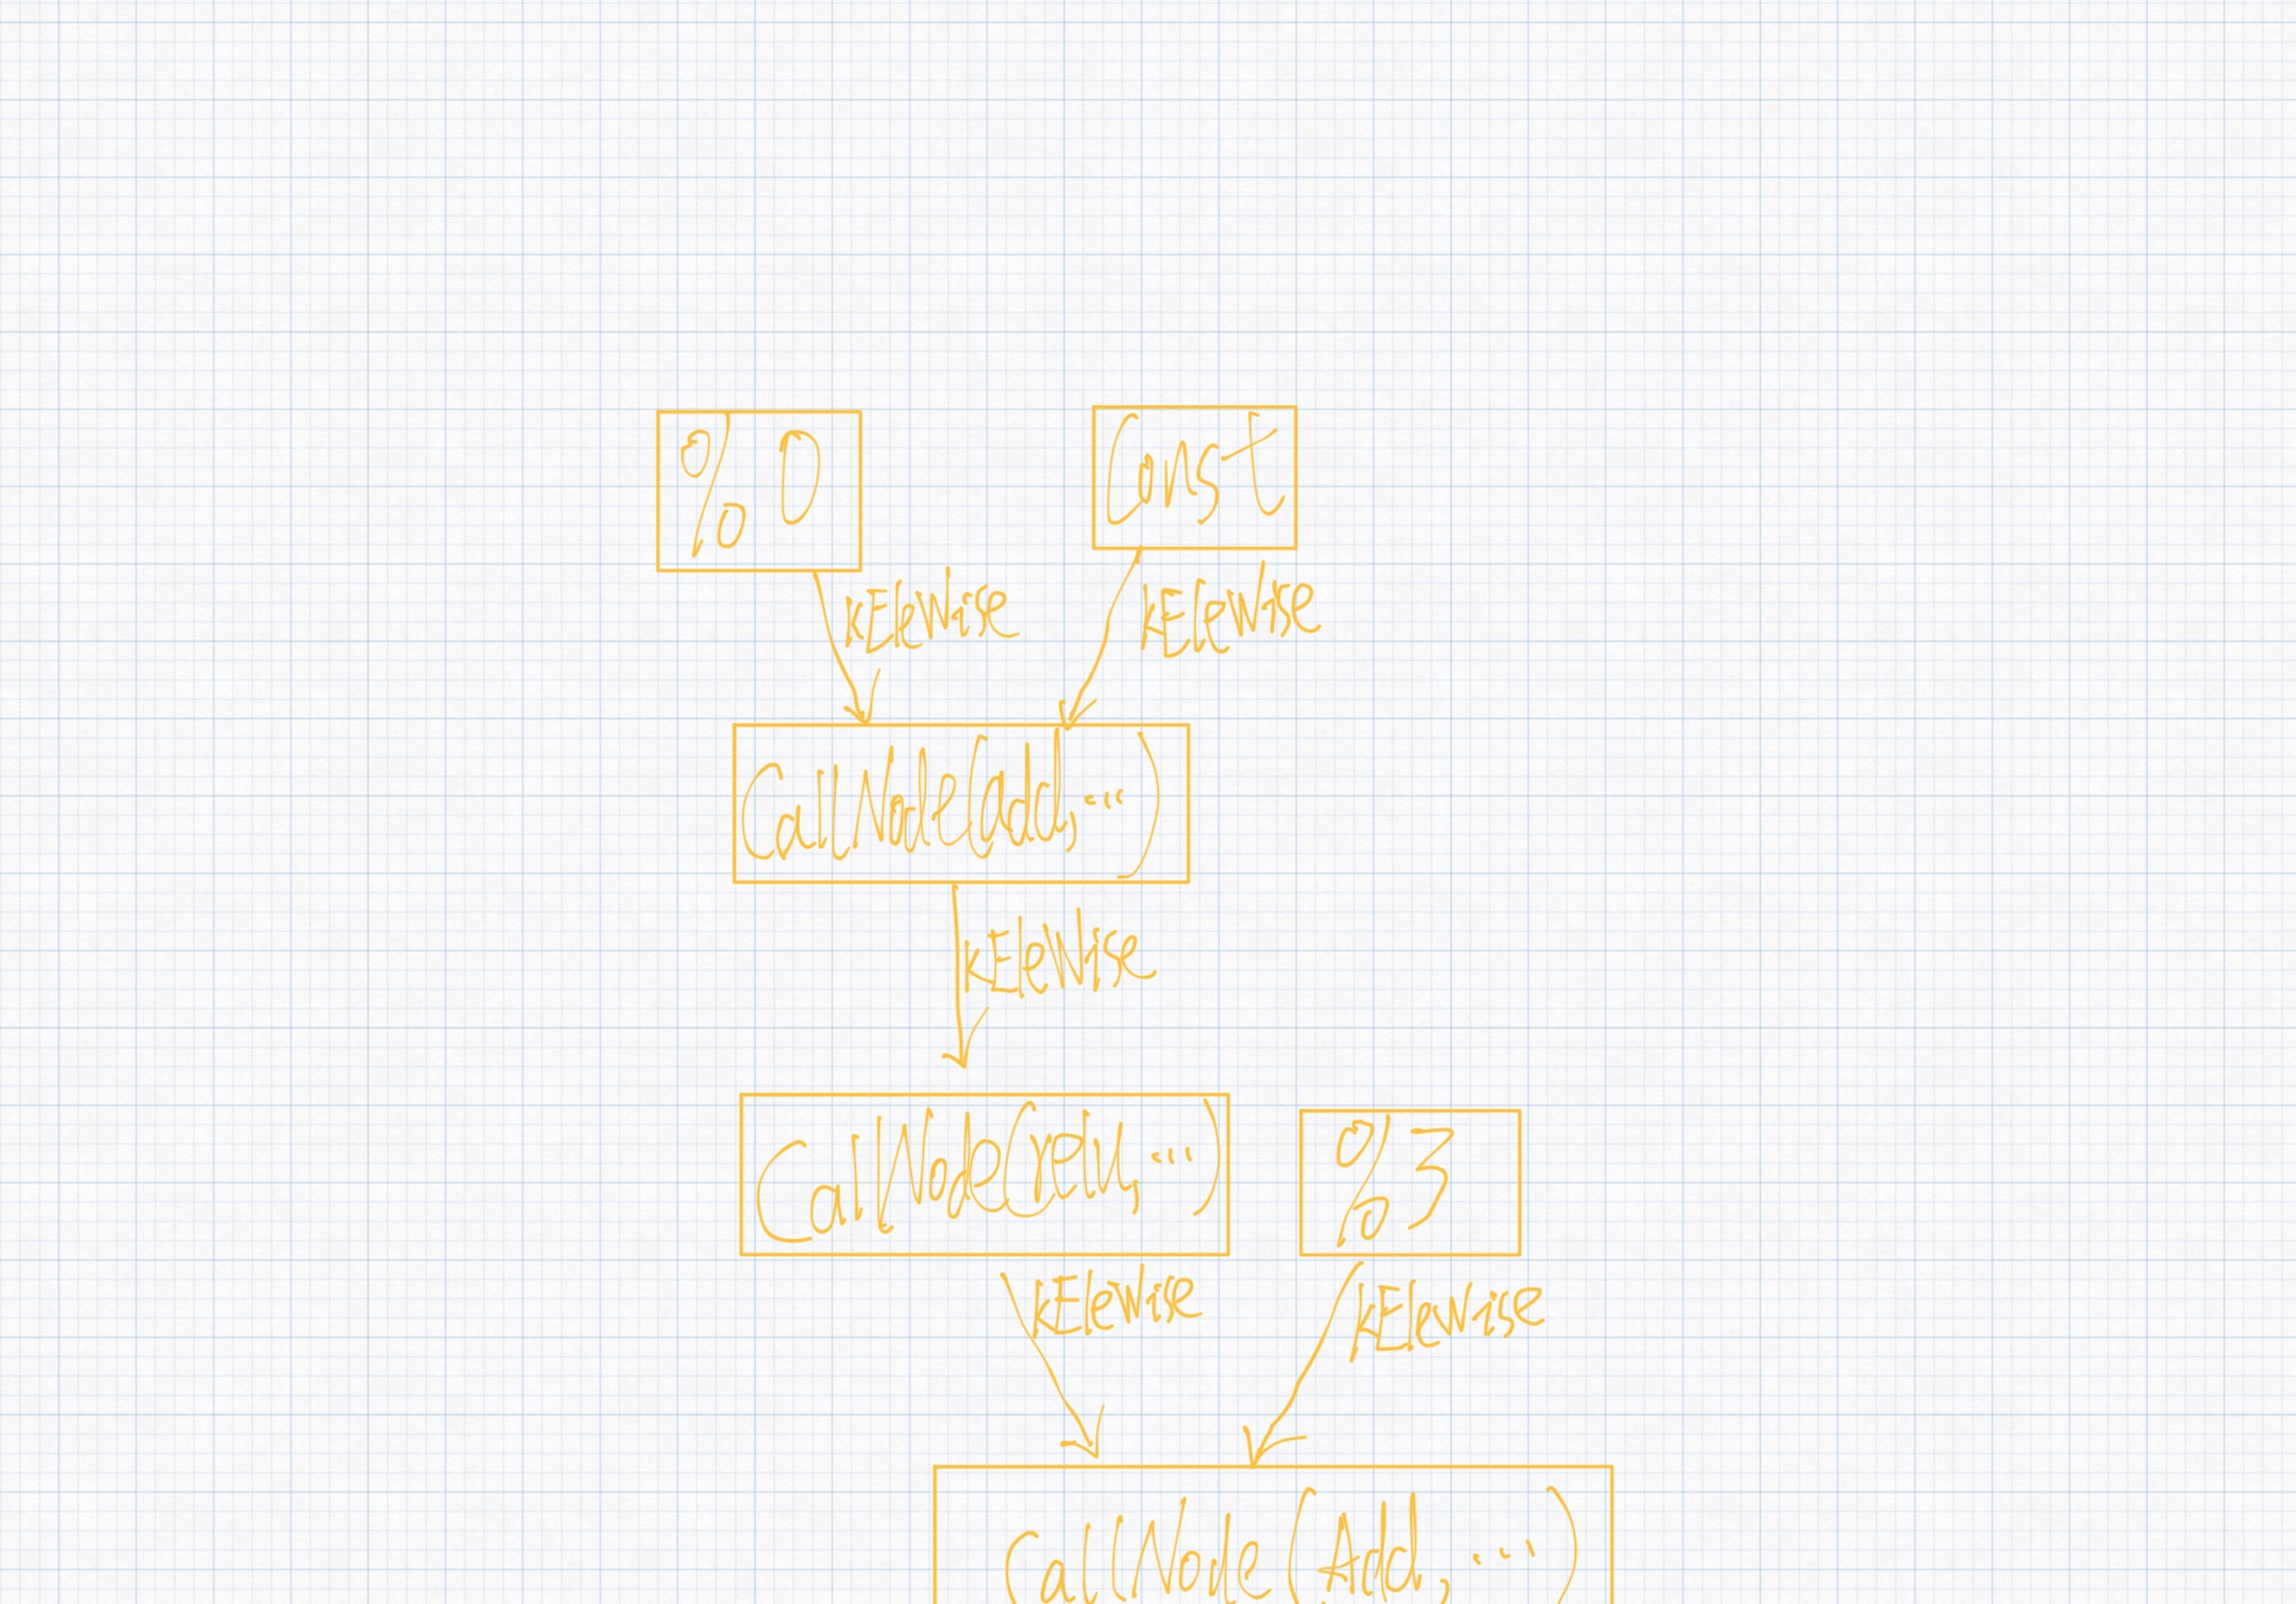 %0
Const
kElewise
kElewise
CallNode(add, ...)
kEleWise
CallNode(relu, ...)
%3
kElewise
kElewise
CallNode(Add, ...)